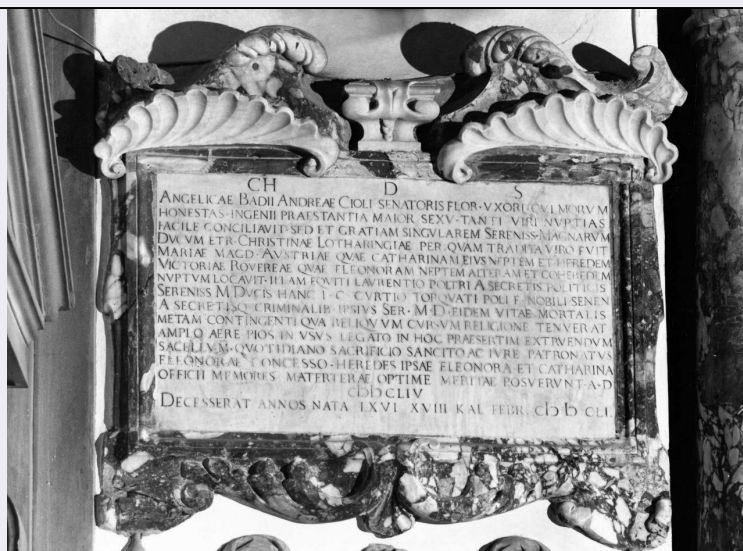 CH D S
ANGELICAE BADII ANDREAE CIOLI SENATORIS FLOR · VXORI · CVI MORVM
HONESTAS · INGENII PRAESTANTIA MAIOR SEXV · TANTI VIRI NVPTIAS
FACILE CONCILIAVIT · SED ET GRATIAM SINGVLAREM SERENISS · MAGNARVM
DVCVM ETR · CHRISTINAE LOTHARINGIAE PER QVAM TRADITA VIRO FVIT
MARIAE MAGD · AVSTRIAE QVAE CATHARINAM EIVS NEPTEM ET HEREDEM
VICTORIAE ROVEREAE QVAE ELEONORAM NEPTEM ALTERAM ET COHEREDEM
NVPTVM LOCAVIT · ILLAM EQVITI LAVRENTIO POLTRI A SECRETIS POLITICIS
SERENISS M DVCIS HANC I · C · CVRTIO TORQVATI POLI F · NOBILI SENEN
A SECRETISQ · CRIMINALIB · IPSIVS SER · M · D · EIDEM VITAE MORTALIS
METAM CONTINGENTI QVA RELIQVVM CVRSVM RELIGIONE TENVERAT
AMPLO AERE PIOS IN VSVS LEGATO IN HOC PRAESERTIM EXTRVENDVM
SACELLVM · QVOTIDIANO SACRIFICIO SANCITO AC IVRE PATRONATVS
ELEONORAE CONCESSO · HEREDES IPSAE ELEONORA ET CATHARINA
OFFICII MEMORES MATERTERAE OPTIME MERITAE POSVERVNT · A · D
CIↃIↃCLIV
DECESSERAT ANNOS NATA LXVI XVIII KAL FEBR · CIↃ IↃ CLI ·